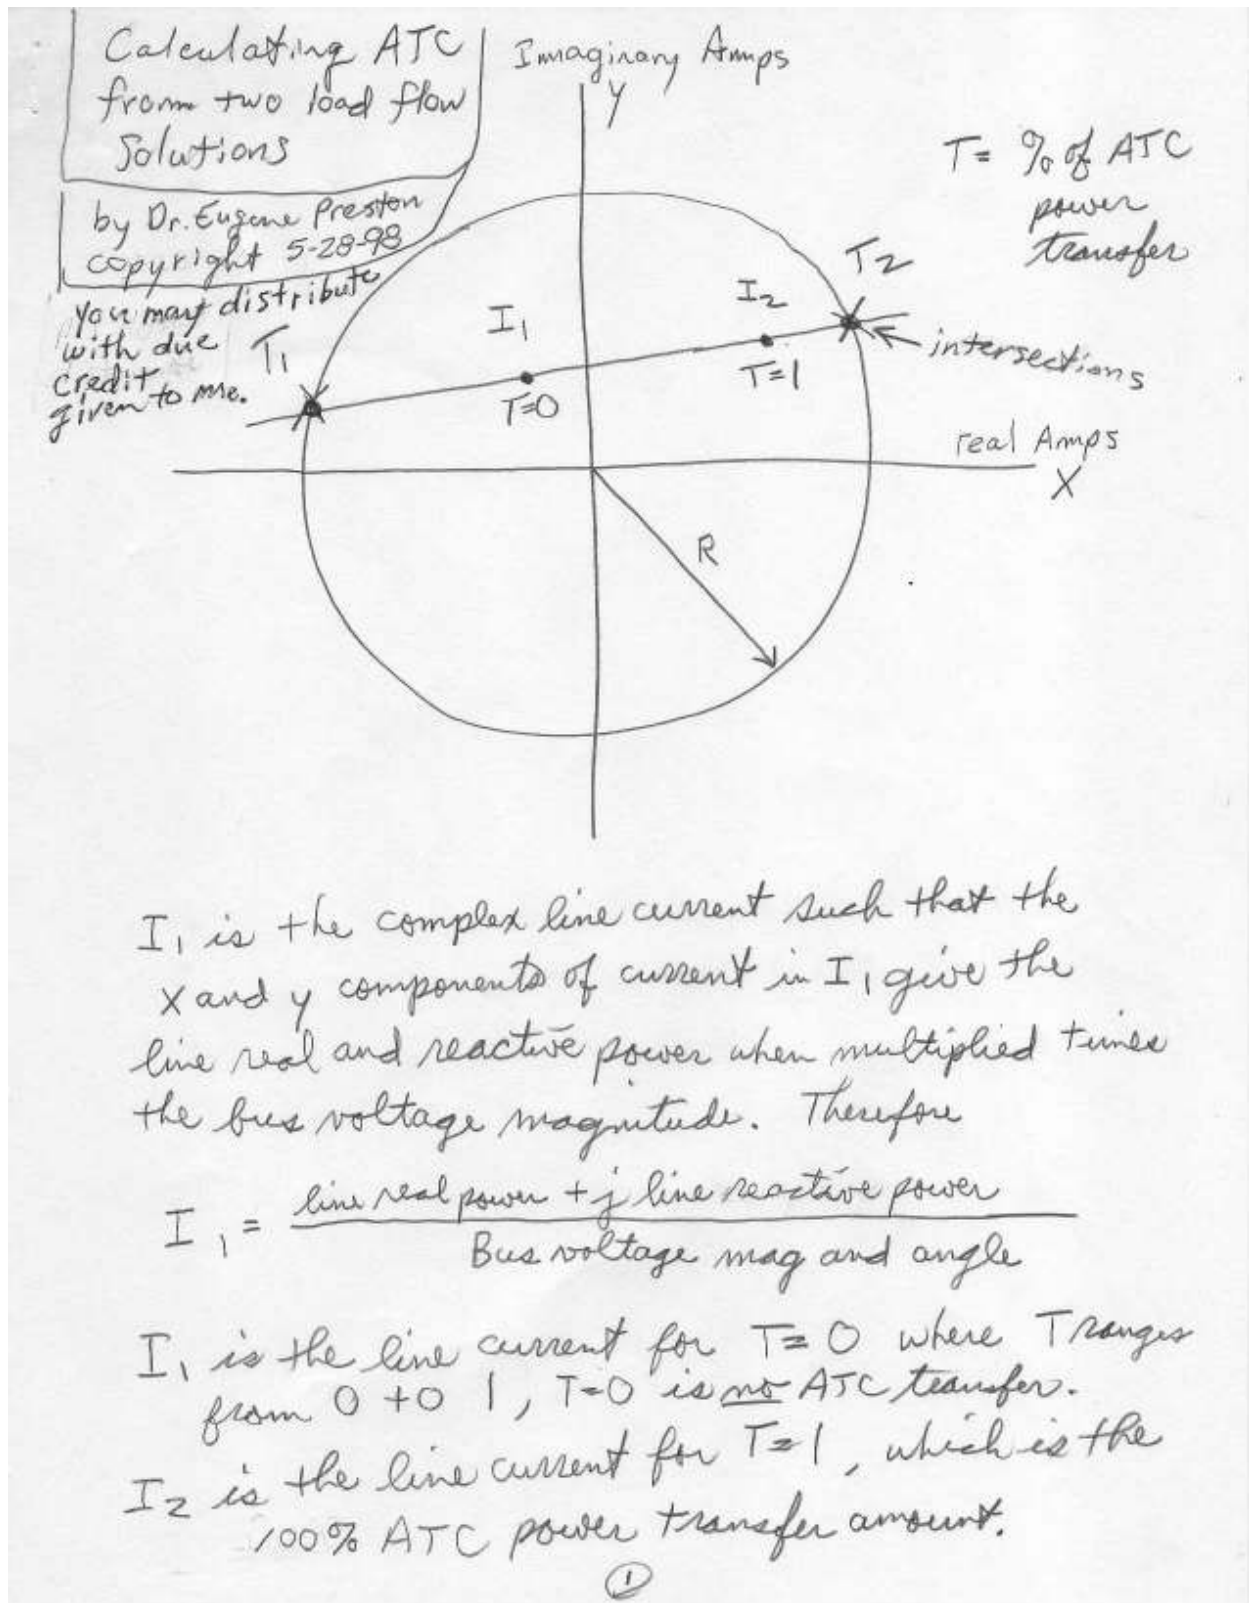 Calculating ATC
from two load flow
Solutions
by Dr. Eugene Preston
copyright 5-28-98
you may distribute
with due
credit
given to me.
Imaginary Amps
Y
T = % of ATC
power
transfer
T2
I2
I1
T1
T=1
T=0
intersections
real Amps
X
R
I1 is the complex line current such that the
X and y components of current in I1 give the
line real and reactive power when multiplied times
the bus voltage magnitude. Therefore
I1 = line real power + j line reactive power
Bus voltage mag and angle
I1 is the line current for T=0 where T ranges
from 0 to 1, T=0 is no ATC transfer.
I2 is the line current for T=1, which is the
100% ATC power transfer amount.
1